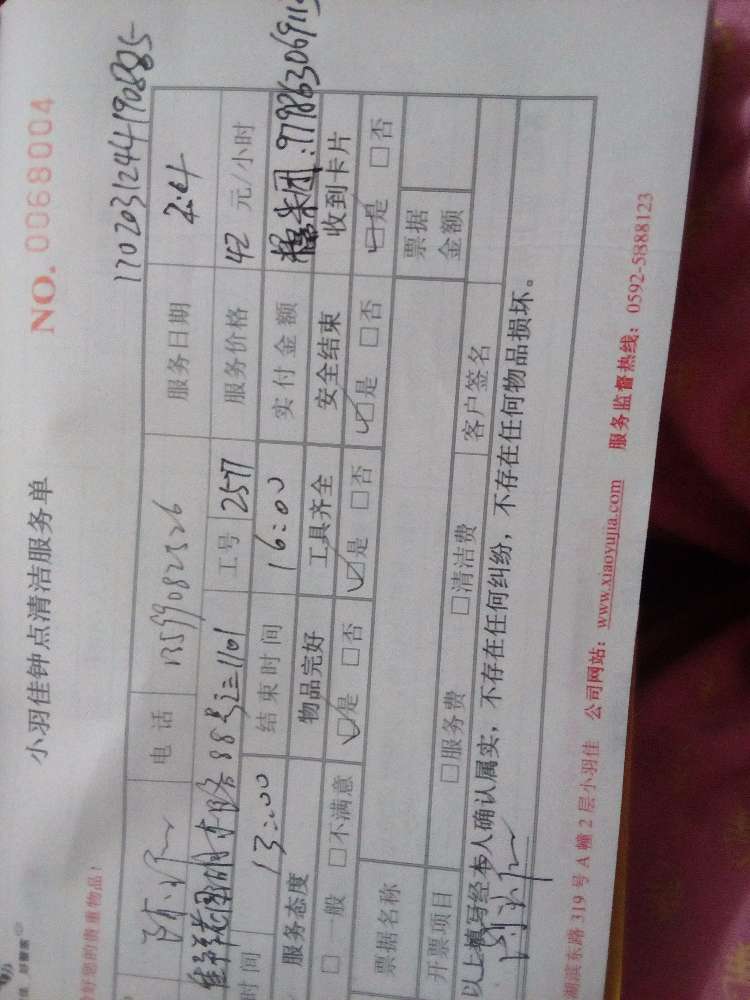 小羽佳钟点清洁服务单
NO. 0068004
1702031244190885
好您的贵重物品!
电话 13599082526 服务日期 2.4
88号之二1101 工号 2577 服务价格 42 元/小时
时间 13:00 结束时间 16:00 实付金额 糯米团:9798630691
服务态度 物品完好 工具齐全 安全结束 收到卡片
□一般 □不满意 □是 □否 □是 □否 □是 □否 □是 □否
票据名称 票据金额
开票项目 □服务费 □清洁费 客户签名
以上填写经本人确认属实,不存在任何纠纷,不存在任何物品损坏。
湖滨东路 319 号 A 幢 2 层小羽佳 公司网站:www.xiaoyujia.com 服务监督热线:0592-5888123